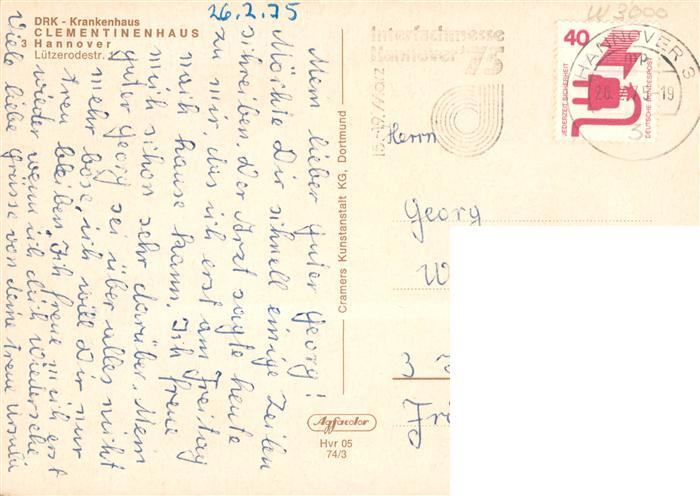 26.2.75
DRK - Krankenhaus
CLEMENTINENHAUS
3 Hannover
Lützerodestr.
Mein lieber guter Georg!
Möchte Dir schnell einige Zeilen
schreiben. Der Arzt sagte heute
zu mir das ich erst am Freitag
nach hause kann. Ich freue
mich schon sehr darüber. Mein
guter Georg sei über alles nicht
mehr böse, ich will Dir nur
treu bleiben, Ich freue mich erst
wieder wenn ich dich wiedersehe
Viele liebe Grüsse von deine treue Ursula
Cramers Kunstanstalt KG, Dortmund
Agfacolor
Hvr 05
74/3
Interfachmesse
Hannover '75
15.-19. März
W 3000
40
JEDERZEIT SICHERHEIT
DEUTSCHE BUNDESPOST
HANNOVER 3
mp
26.-2.75-19
3
Herrn
Georg
W
3